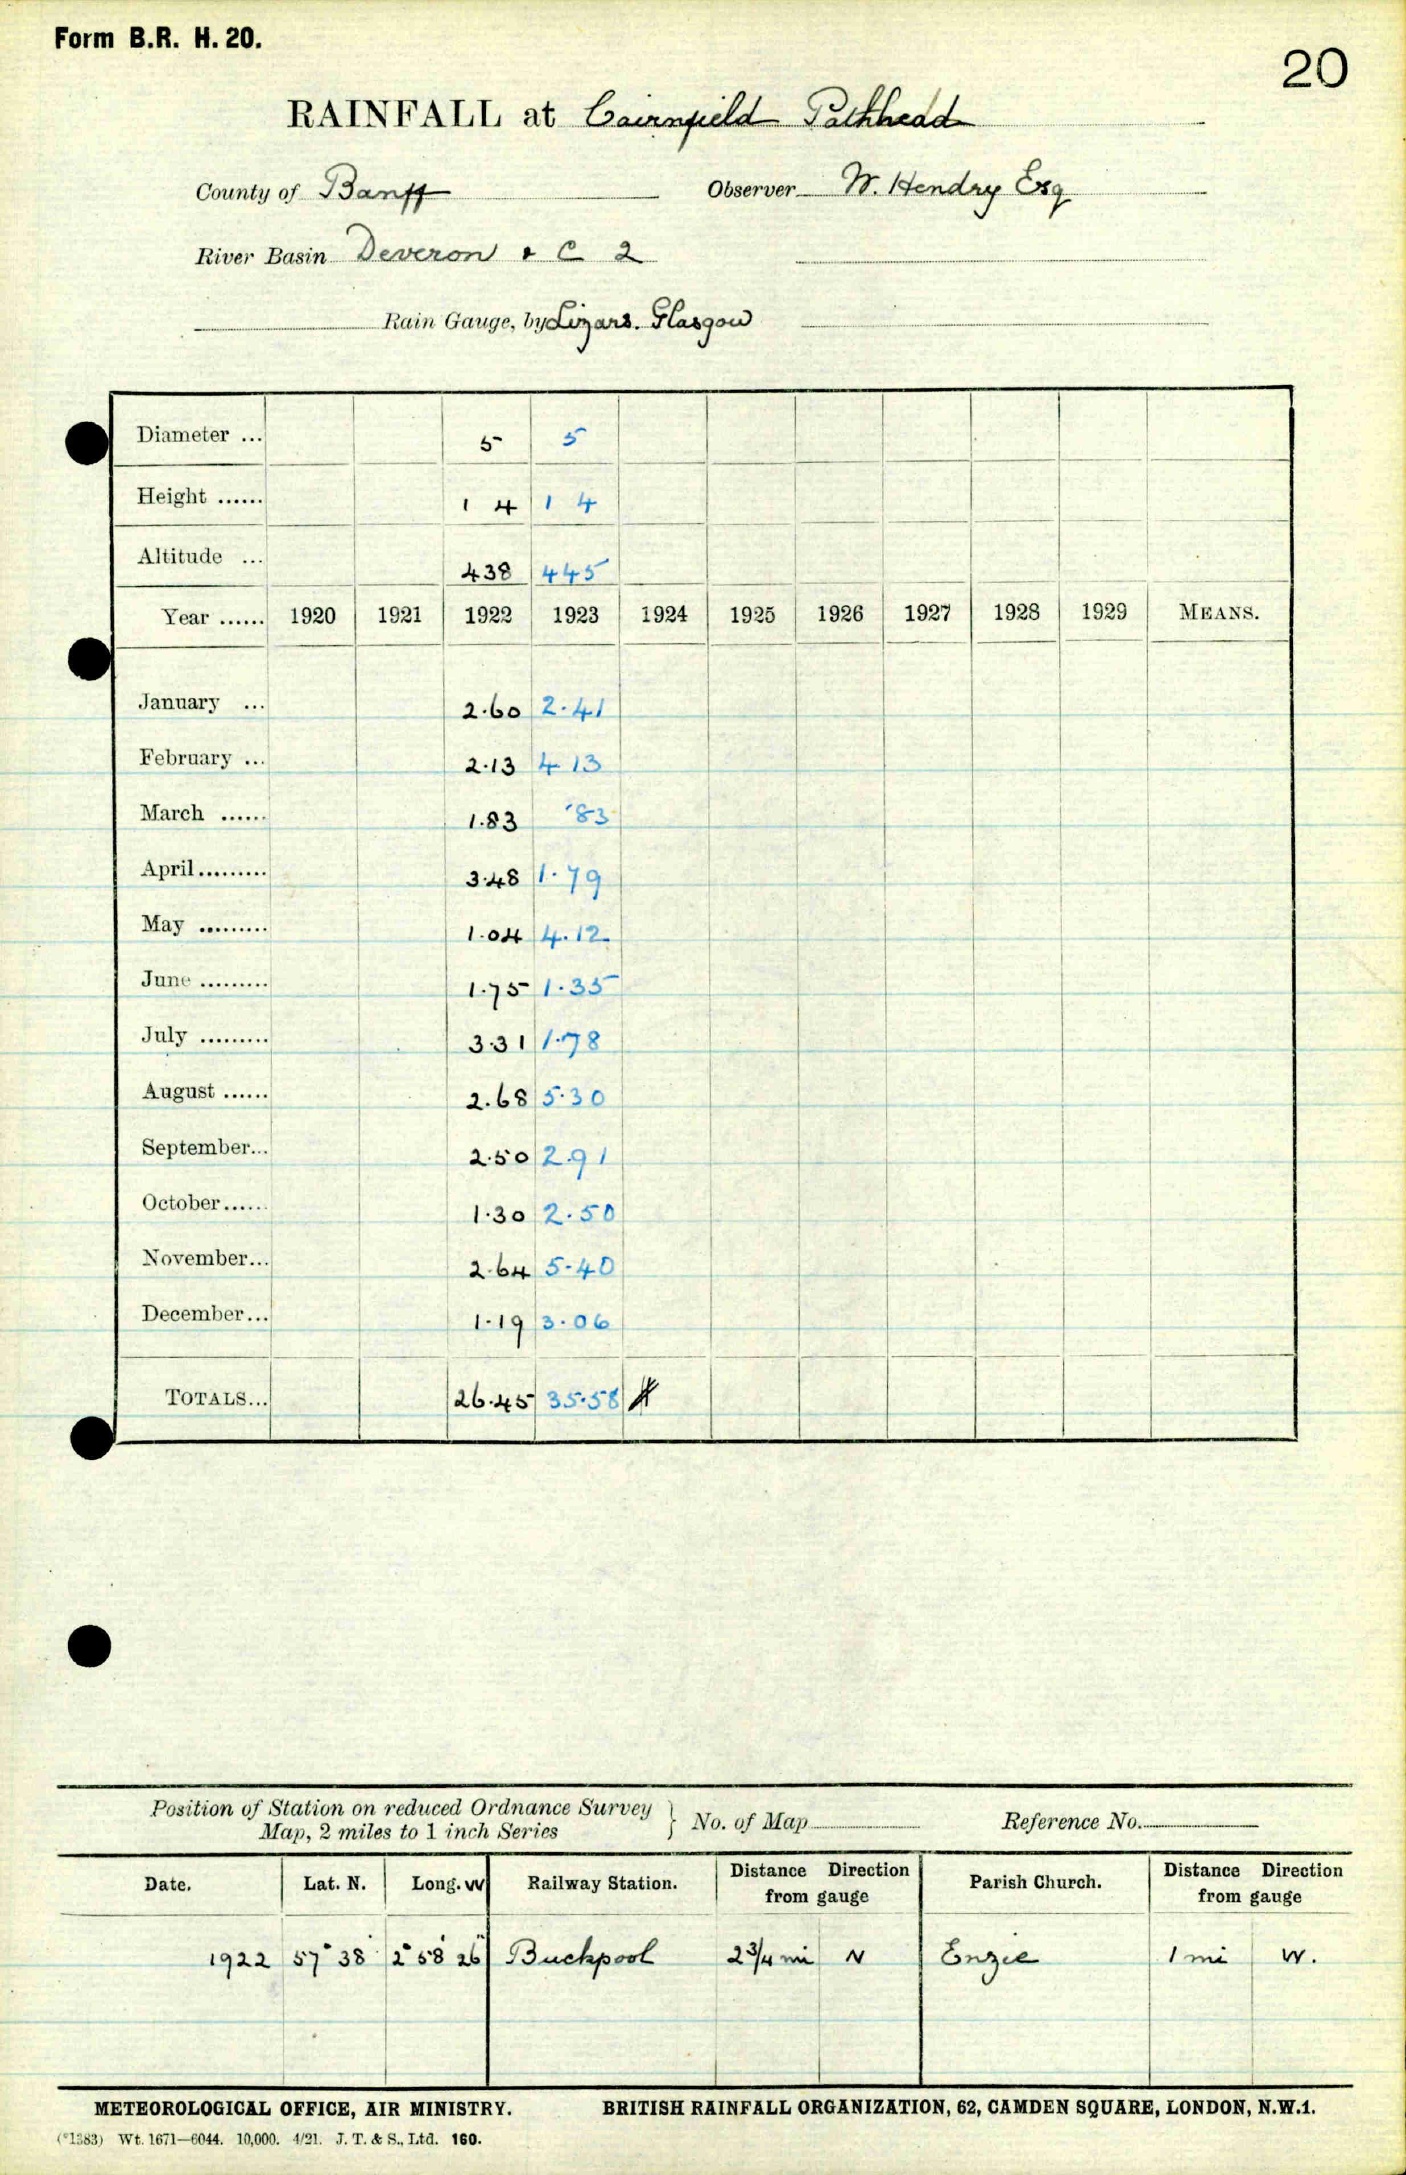 Form B.R. H. 20.
20
RAINFALL at Cairnfield Pathhead
County of Banff Observer W. Hendry Esq
River Basin Deveron & C 2
Rain Gauge, by Lizars. Glasgow
Diameter ... 5 5
Height ...... 1 4 1 4
Altitude ... 438 445
Year ...... 1920 1921 1922 1923 1924 1925 1926 1927 1928 1929 MEANS.
January ... 2.60 2.41
February ... 2.13 4 13
March ...... 1.83 .83
April......... 3.48 1.79
May ......... 1.04 4.12
June ......... 1.75 1.35
July ......... 3.31 1.78
August ...... 2.68 5.30
September... 2.50 2.91
October...... 1.30 2.50
November... 2.64 5.40
December... 1.19 3.06
TOTALS... 26.45 35.58
Position of Station on reduced Ordnance Survey
Map, 2 miles to 1 inch Series } No. of Map Reference No.
Date. Lat. N. Long. W Railway Station. Distance Direction from gauge Parish Church. Distance Direction from gauge
1922 57° 38' 2° 58' 26" Buckpool 2¾ mi N Enzie 1 mi W.
METEOROLOGICAL OFFICE, AIR MINISTRY. BRITISH RAINFALL ORGANIZATION, 62, CAMDEN SQUARE, LONDON, N.W.1.
(*1383) Wt. 1671—6044. 10,000. 4/21. J. T. & S., Ltd. 160.